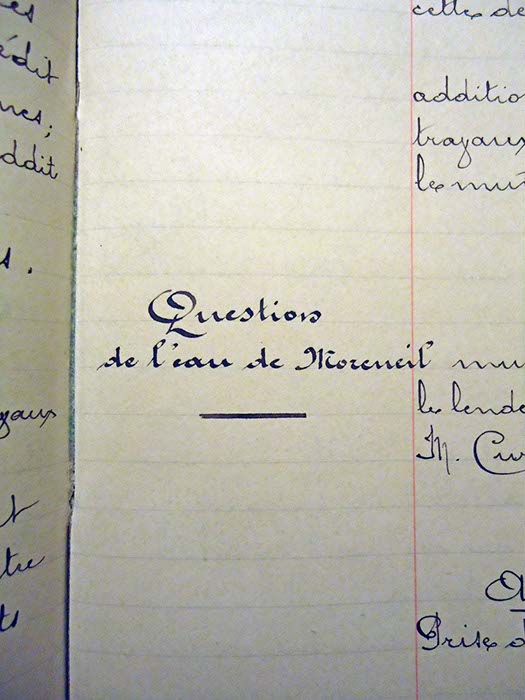 édit
nes;
ddit
s.
yaux
tre
ts
Question
de l'eau de Moreneil
celles de
additio
travaux
les mu
mu
le lende
M. Cur
Prise d